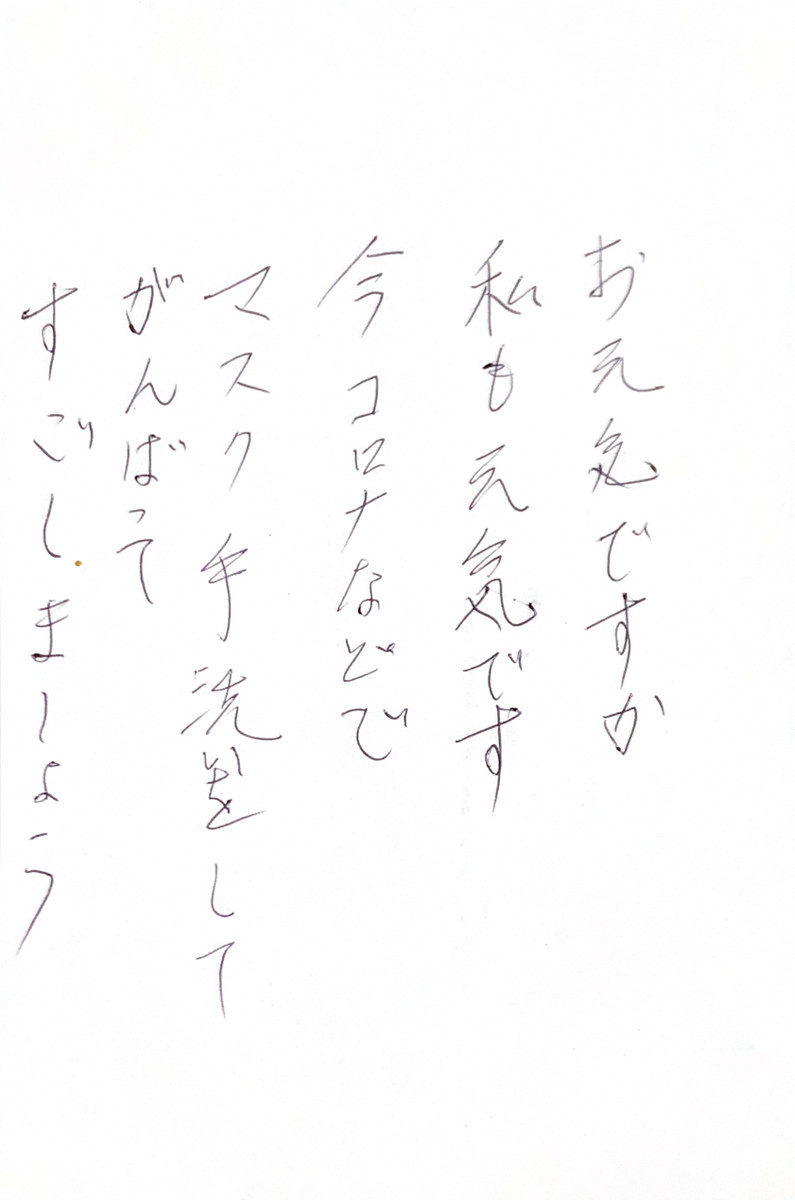 お元気ですか
私も元気です
今コロナなどで
マスク手洗いをして
がんばって
すごしましょう